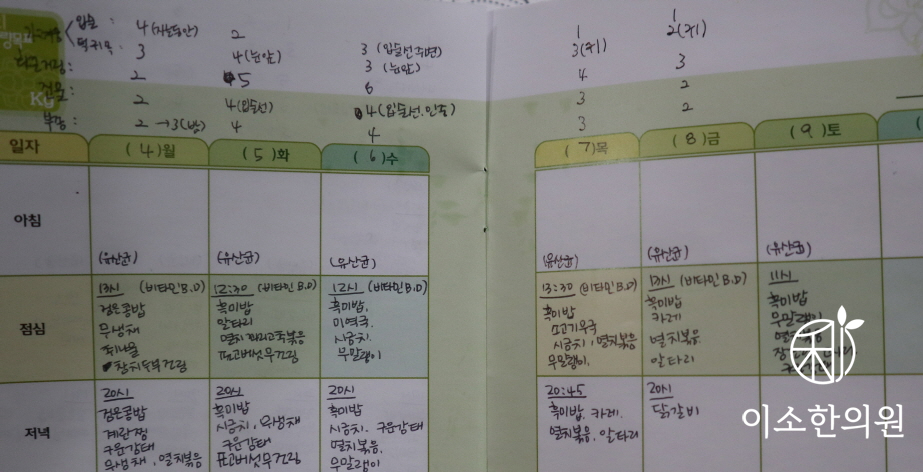 입술 : 4 (자는동안) 2
3 4 (눈앞) 3 (입술선 주변)
2 5 3 (눈앞)
6
2 4 (입술선) 4 (입술선, 인중)
2 → 3 (밤) 4 4
1 1
3 2
4 3
3 2
3 2
Ku
일자 (4)월 (5)화 (6)수 (7)목 (8)금 (9)토
아침
(유산균) (유산균) (유산균) (유산균) (유산균) (유산균)
점심
13시 (비타민 B.D)
검은콩밥
무생채
취나물
12:30 (비타민 B.D)
흑미밥
알타리
멸치꽈리고추볶음
표고버섯무건림
12시 (비타민 B.D)
흑미밥,
미역국,
시금치,
무말랭이
13:30 (비타민 B.D)
흑미밥
쇠고기무국
시금치, 멸치볶음
무말랭이,
13시 (비타민 B.D)
흑미밥
카레
멸치볶음
알타리
11시
흑미밥
무말랭이
저녁
20시
검은콩밥
계란찜
구운감태
무생채, 멸치볶음
20시
흑미밥
시금치, 무생채
구운감태
표고버섯무건림
20시
흑미밥
시금치, 구운감태
멸치볶음,
무말랭이
20:45
흑미밥, 카레,
멸치볶음, 알타리
20시
닭갈비
이소한의원